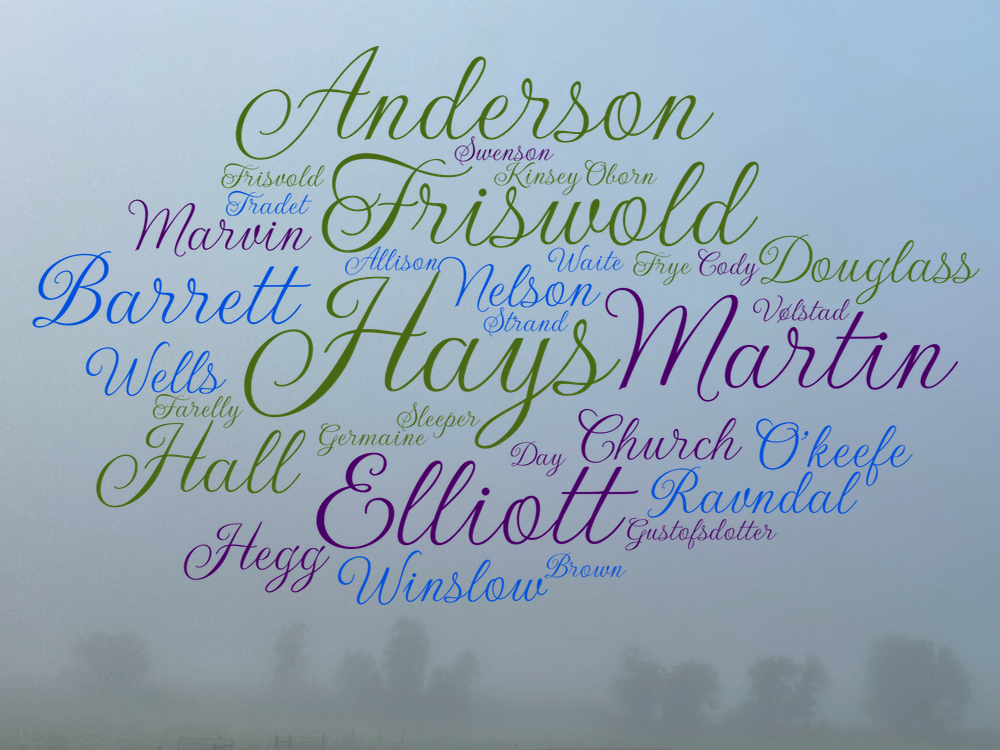 Anderson
Swenson
Frisvold
Friswold
Kinsey
Oborn
Tradet
Marvin
Allison
Waite
Frye
Cody
Douglass
Barrett
Nelson
Hays
Strand
Martin
Vølstad
Wells
Farelly
Sleeper
Germaine
Hall
Day
Church
O'keefe
Elliott
Ravndal
Gustofsdotter
Hegg
Winslow
Brown